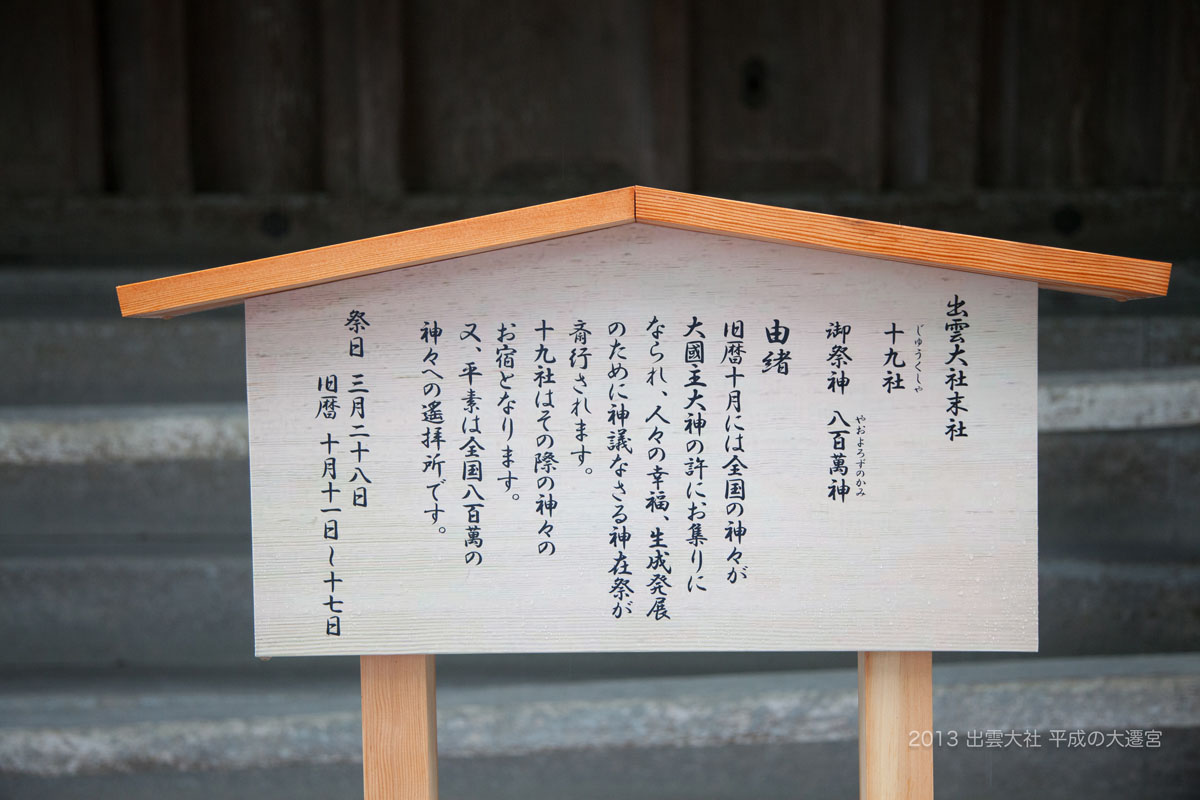 出雲大社末社
じゅうくしゃ
十九社
やおよろずのかみ
御祭神 八百萬神
由緒
旧暦十月には全国の神々が
大國主大神の許にお集りに
なられ、人々の幸福、生成発展
のために神議なさる神在祭が
斎行されます。
十九社はその際の神々の
お宿となります。
又、平素は全国八百萬の
神々への遙拝所です。
祭日 三月二十八日
旧暦 十月十一日〜十七日
2013 出雲大社 平成の大遷宮